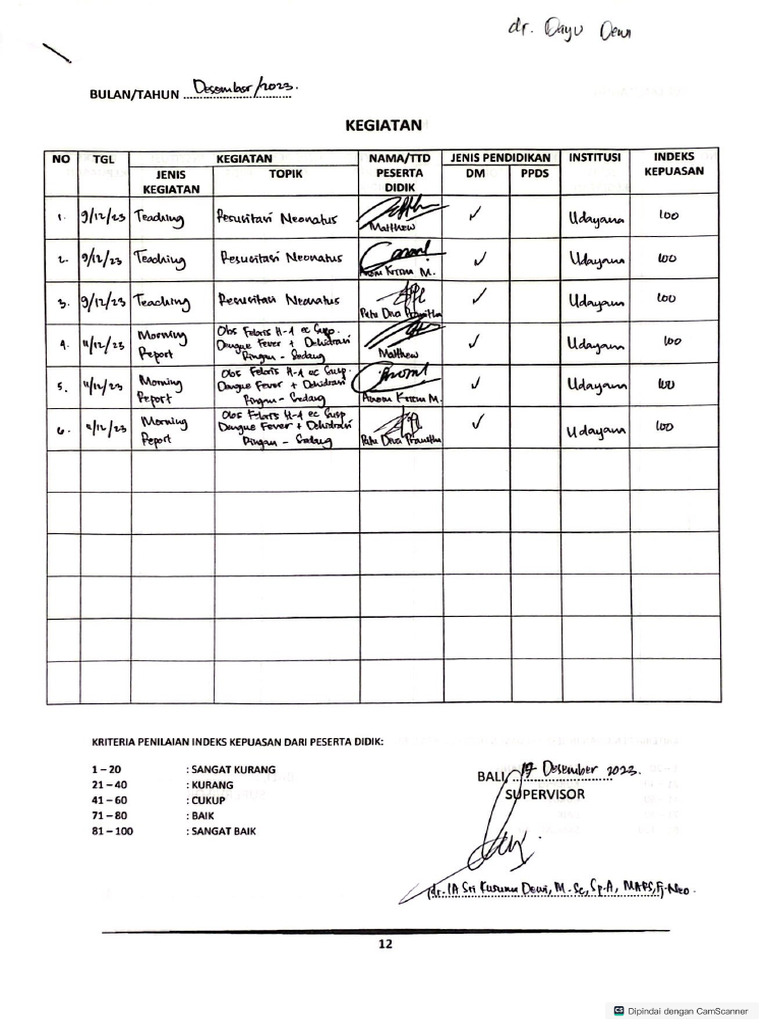 dr. Dayu Dewi
BULAN/TAHUN Desember/2023.
KEGIATAN
NO TGL KEGIATAN NAMA/TTD PESERTA DIDIK JENIS PENDIDIKAN INSTITUSI INDEKS KEPUASAN
JENIS KEGIATAN TOPIK DM PPDS
1. 9/12/23 Teaching Resusitasi Neonatus Matthew ✓ Udayana 100
2. 9/12/23 Teaching Resusitasi Neonatus Krisna M. ✓ Udayana 100
3. 9/12/23 Teaching Resusitasi Neonatus Putu Diva ✓ Udayana 100
4. 11/12/23 Morning Report Obs Febris H-1 ec Susp. Dengue Fever + Dehidrasi Ringan - Sedang Matthew ✓ Udayana 100
5. 11/12/23 Morning Report Obs Febris H-1 ec Susp. Dengue Fever + Dehidrasi Ringan - Sedang Krisna M. ✓ Udayana 100
6. 11/12/23 Morning Report Obs Febris H-1 ec Susp Dengue Fever + Dehidrasi Ringan - Sedang Putu Diva ✓ Udayana 100
KRITERIA PENILAIAN INDEKS KEPUASAN DARI PESERTA DIDIK:
1 – 20 : SANGAT KURANG
21 – 40 : KURANG
41 – 60 : CUKUP
71 – 80 : BAIK
81 – 100 : SANGAT BAIK
BALI, 17 Desember 2023.
SUPERVISOR
dr. IA Sri Kusuma Dewi, M.Sc, Sp.A, MARS, Fj-Neo.
12
CS Dipindai dengan CamScanner